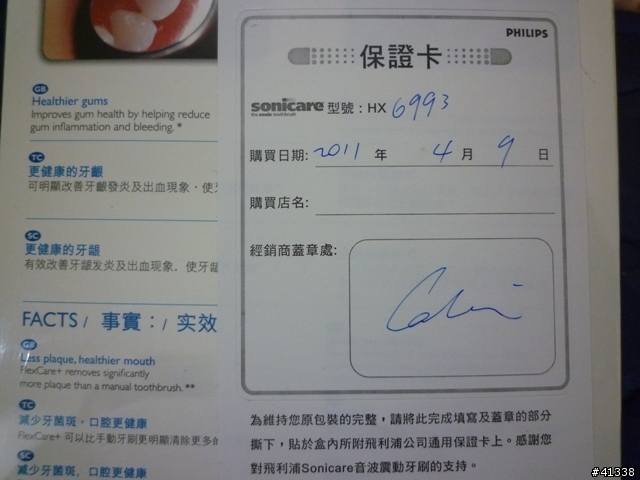 GB
Healthier gums
Improves gum health by helping reduce
gum inflammation and bleeding. *
TC
更健康的牙齦
可明顯改善牙齦發炎及出血現象，使牙
SC
更健康的牙龈
有效改善牙龈发炎及出血现象，使牙龈
FACTS / 事實： / 实效
GB
Less plaque, healthier mouth
FlexCare+ removes significantly
more plaque than a manual toothbrush. **
TC
減少牙菌斑，口腔更健康
FlexCare+ 可以比手動牙刷更明顯清除更多的
SC
减少牙菌斑，口腔更健康
PHILIPS
保證卡
sonicare 型號：HX 6993
the sonic toothbrush
購買日期: 2011 年 4 月 9 日
購買店名:
經銷商蓋章處:
為維持您原包裝的完整，請將此完成填寫及蓋章的部分
撕下，貼於盒內所附飛利浦公司通用保證卡上。感謝您
對飛利浦Sonicare音波震動牙刷的支持。
#41338